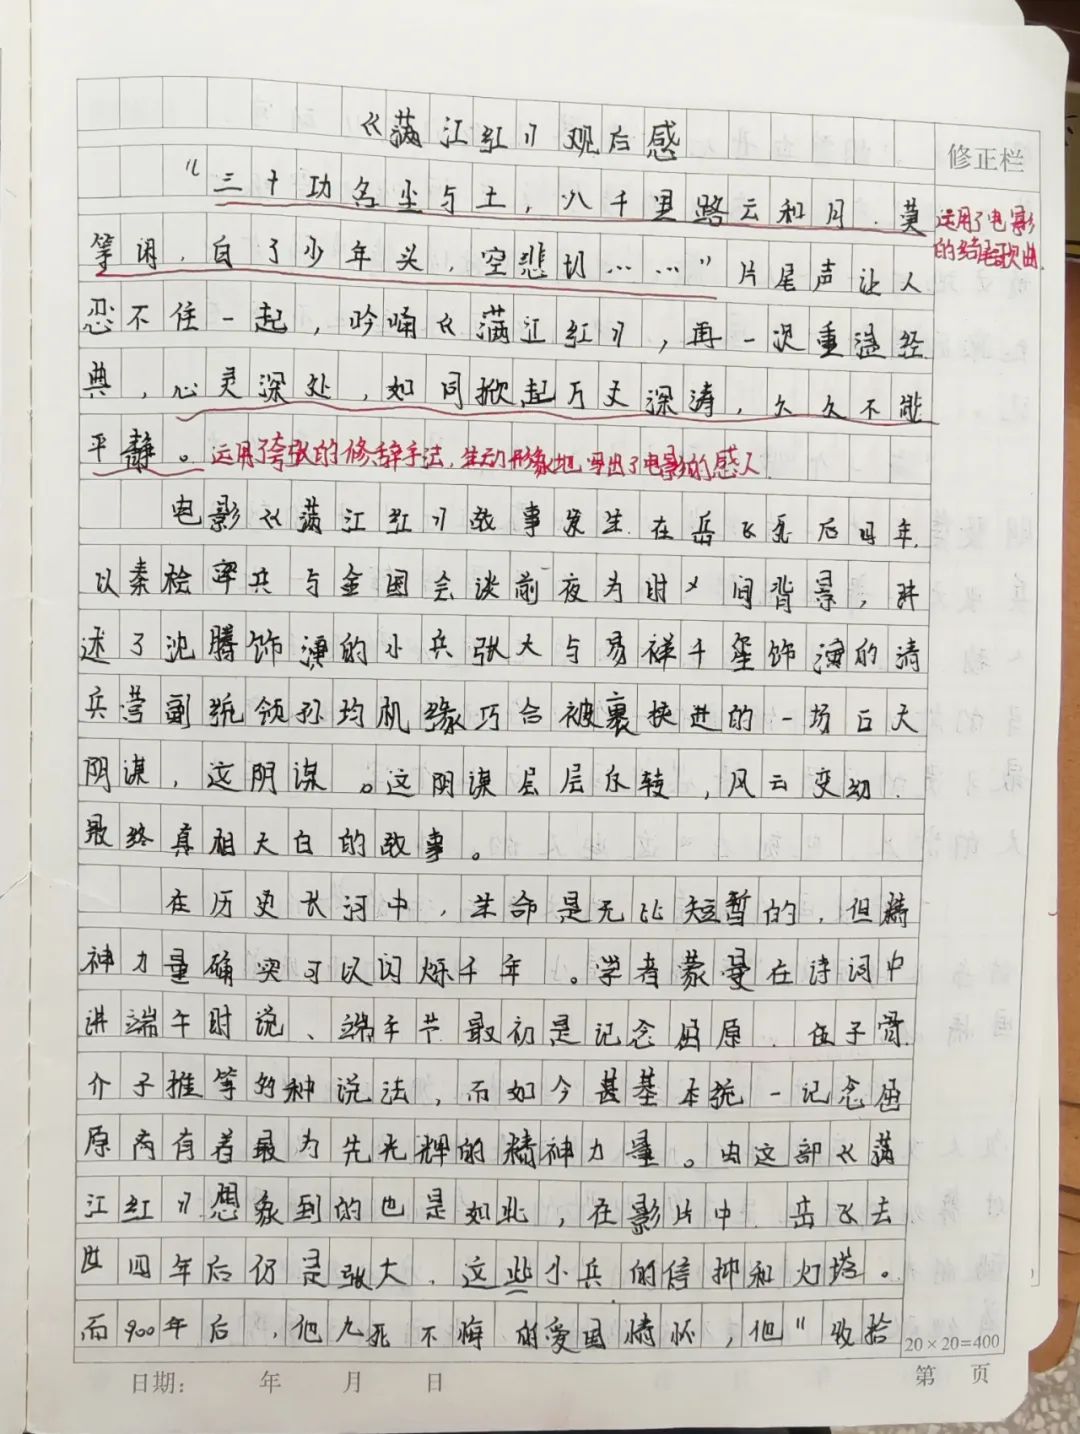 《满江红》观后感
修正栏
“三十功名尘与土，八千里路云和月.莫
运用了电影
的结尾歌曲.
等闲.白了少年头，空悲切……”片尾声让人
忍不住一起，吟诵《满江红》，再一次重温经
典，心灵深处，如同掀起万丈深涛，久久不能
平静。运用了夸张的修辞手法，生动形象地写出了电影的感人.
电影《满江红》故事发生在岳飞死后四年.
以秦桧率兵与金国会谈前夜为时间背景，讲
述了沈腾饰演的小兵张大与易祥千玺饰演的清
兵营副统领孙均机缘巧合被裹挟进的一场巨大
阴谋，这阴谋。这阴谋层层反转，风云变幻.
最终真相大白的故事。
在历史长河中，生命是无比短暂的，但精
神力量确实可以闪烁千年。学者蒙曼在诗词中
讲端午时说、端午节最初是记念屈原.伍子胥.
介子推等多种说法，而如今甚基本统一记念屈
原两有着最为先光辉的精神力量。由这部《满
江红》想象到的也是如此，在影片中.岳飞去
世四年后仍是张大、这些小兵的信抑和灯塔。
而900年后，他九死不悔的爱国情怀，他“收拾
20×20=400
日期： 年 月 日
第 页